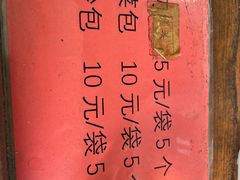 5元/袋5个
包 10元/袋5个
包 10元/袋5